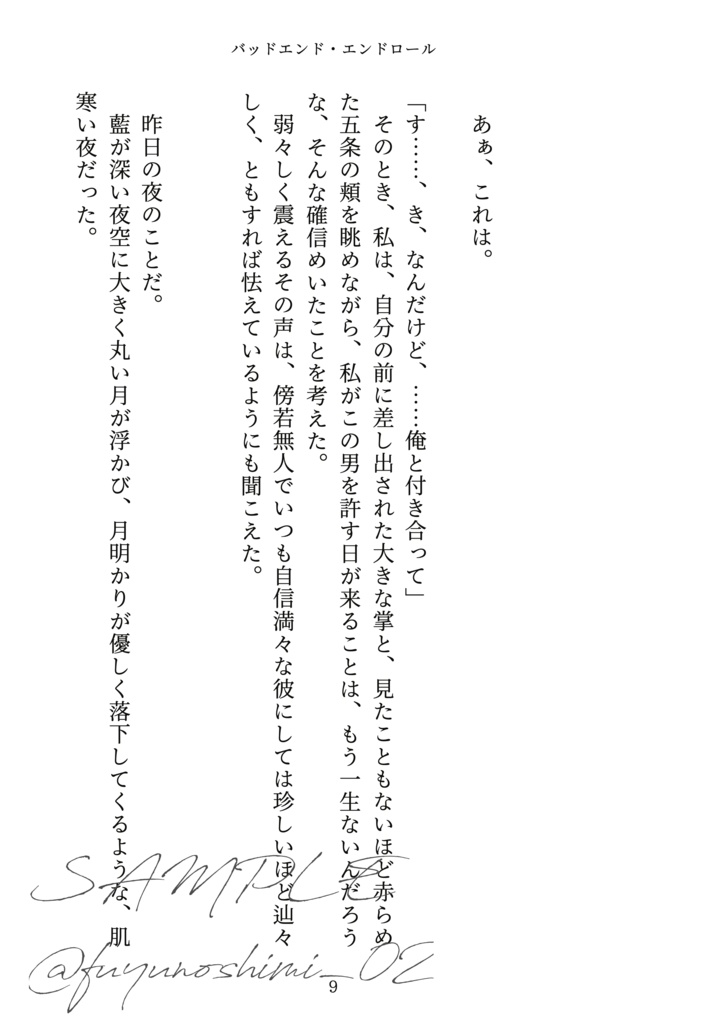 バッドエンド・エンドロール
あぁ、これは。
「す……、き、なんだけど、……俺と付き合って」
そのとき、私は、自分の前に差し出された大きな掌と、見たこともないほど赤らめ
た五条の頬を眺めながら、私がこの男を許す日が来ることは、もう一生ないんだろう
な、そんな確信めいたことを考えた。
弱々しく震えるその声は、傍若無人でいつも自信満々な彼にしては珍しいほど辿々
しく、ともすれば怯えているようにも聞こえた。
昨日の夜のことだ。
藍が深い夜空に大きく丸い月が浮かび、月明かりが優しく落下してくるような、肌
寒い夜だった。
SAMPLE
@fuyunoshimi_02
9